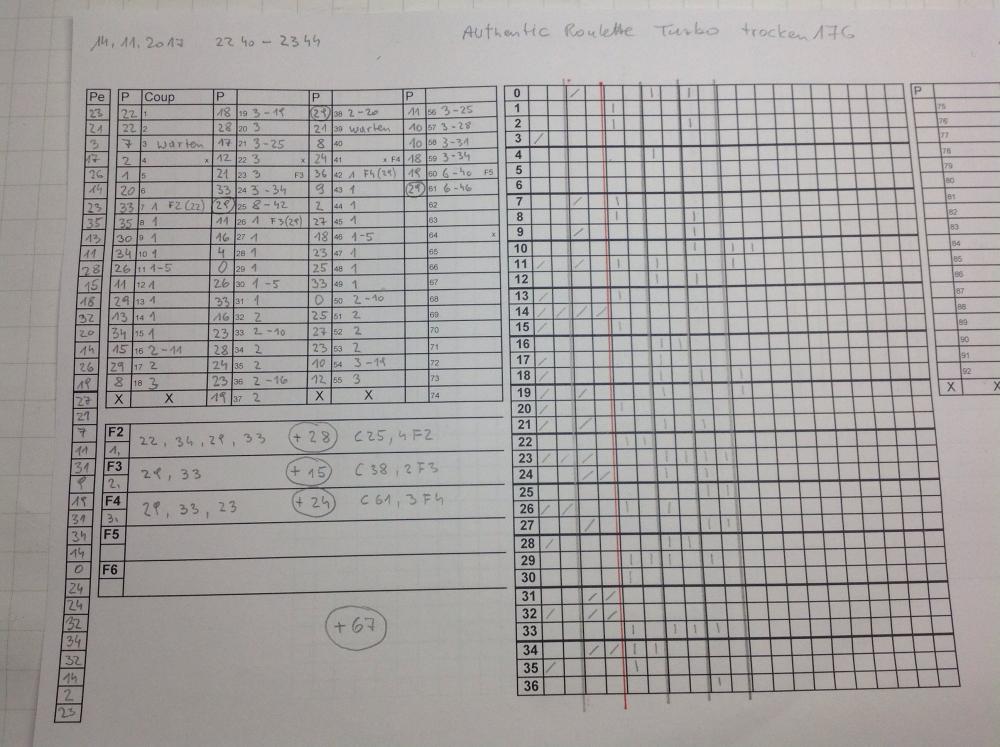 14.11.2017 22 40 - 23 44 Authentic Roulette Turbo trocken 176
Pe P Coup P P P
23 22 1 18 19 3-19 29 38 2-20 11 56 3-25
21 22 2 28 20 3 21 39 warten 10 57 3-28
3 7 3 warten 17 21 3-25 8 40 10 58 3-31
17 2 4 x 12 22 3 x 24 41 x F4 18 59 3-34
26 1 5 21 23 3 F3 36 42 1 F4(29) 19 60 6-40 F5
14 20 6 33 24 3-34 9 43 1 29 61 6-46
23 33 7 1 F2(22) 29 25 8-42 2 44 1 62
35 35 8 1 11 26 1 F3(29) 27 45 1 63
13 30 9 1 16 27 1 18 46 1-5 64 x
11 34 10 1 4 28 1 23 47 1 65
28 26 11 1-5 0 29 1 25 48 1 66
15 11 12 1 26 30 1-5 33 49 1 67
18 29 13 1 33 31 1 0 50 2-10 68
32 13 14 1 16 32 2 25 51 2 69
20 34 15 1 23 33 2-10 27 52 2 70
14 15 16 2-11 28 34 2 23 53 2 71
26 29 17 2 24 35 2 10 54 3-19 72
19 8 18 3 23 36 2-16 12 55 3 73
27 X X 19 37 2 X X 74
29
7
11
31
9
19
31
34
14
0
24
24
32
34
32
14
2
23
F2 22, 34, 29, 33 +28 C25, 4 F2
1,
F3 29, 33 +15 C38, 2 F3
2,
F4 29, 33, 23 +24 C61, 3 F4
3,
F5
F6
+67
0
1
2
3
4
5
6
7
8
9
10
11
12
13
14
15
16
17
18
19
20
21
22
23
24
25
26
27
28
29
30
31
32
33
34
35
36
P
75
76
77
78
79
80
81
82
83
84
85
86
87
88
89
90
91
92
X X